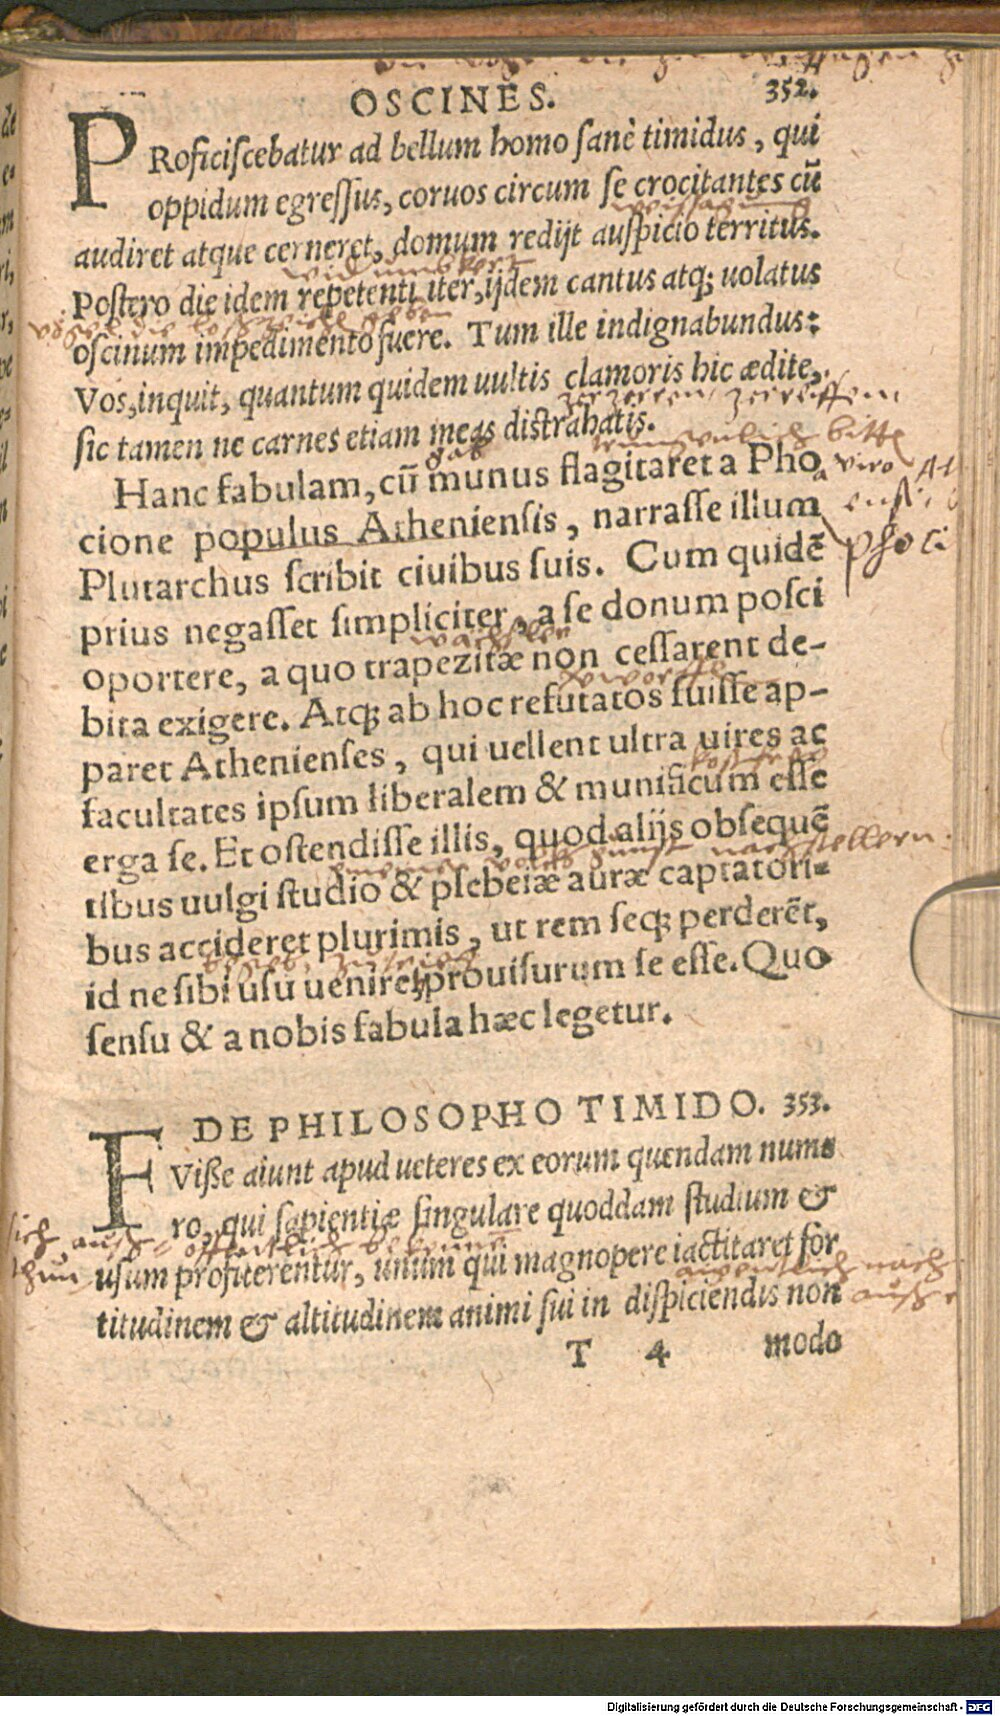 OSCINES. 352.
PRoficiſcebatur ad bellum homo ſanè timidus, qui
oppidum egreſſus, coruos circum ſe crocitantes cū
audiret atque cerneret, domum redijt auſpicio territus.
Poſtero die idem repetenti iter, ijdem cantus atq; uolatus
oſcinum impedimento fuere. Tum ille indignabundus:
Vos, inquit, quantum quidem uultis clamoris hic ædite,
ſic tamen ne carnes etiam meas diſtrahatis.
Hanc fabulam, cū munus flagitaret a Pho
cione populus Athenienſis, narraſſe illum
Plutarchus ſcribit ciuibus ſuis. Cum quidē
prius negaſſet ſimpliciter, a ſe donum poſci
oportere, a quo trapezitæ non ceſſarent de-
bita exigere. Atq; ab hoc refutatos fuiſſe ap-
paret Athenienſes, qui uellent ultra uires ac
facultates ipſum liberalem & munificum eſſe
erga ſe. Et oſtendiſſe illis, quod alijs obſequē
tibus uulgi ſtudio & plebeiæ auræ captatori-
bus accideret plurimis, ut rem ſeq; perderēt,
id ne ſibi uſu ueniret, prouiſurum ſe eſſe. Quo
ſenſu & a nobis fabula hæc legetur.
DE PHILOSOPHO TIMIDO. 353.
FViſſe aiunt apud ueteres ex eorum quendam nume
ro, qui ſapientiæ ſingulare quoddam ſtudium &
uſum profiterentur, unum qui magnopere iactitaret for
titudinem & altitudinem animi ſui in diſpiciendis non
T 4 modo
Digitalisierung gefördert durch die Deutsche Forschungsgemeinschaft - DFG